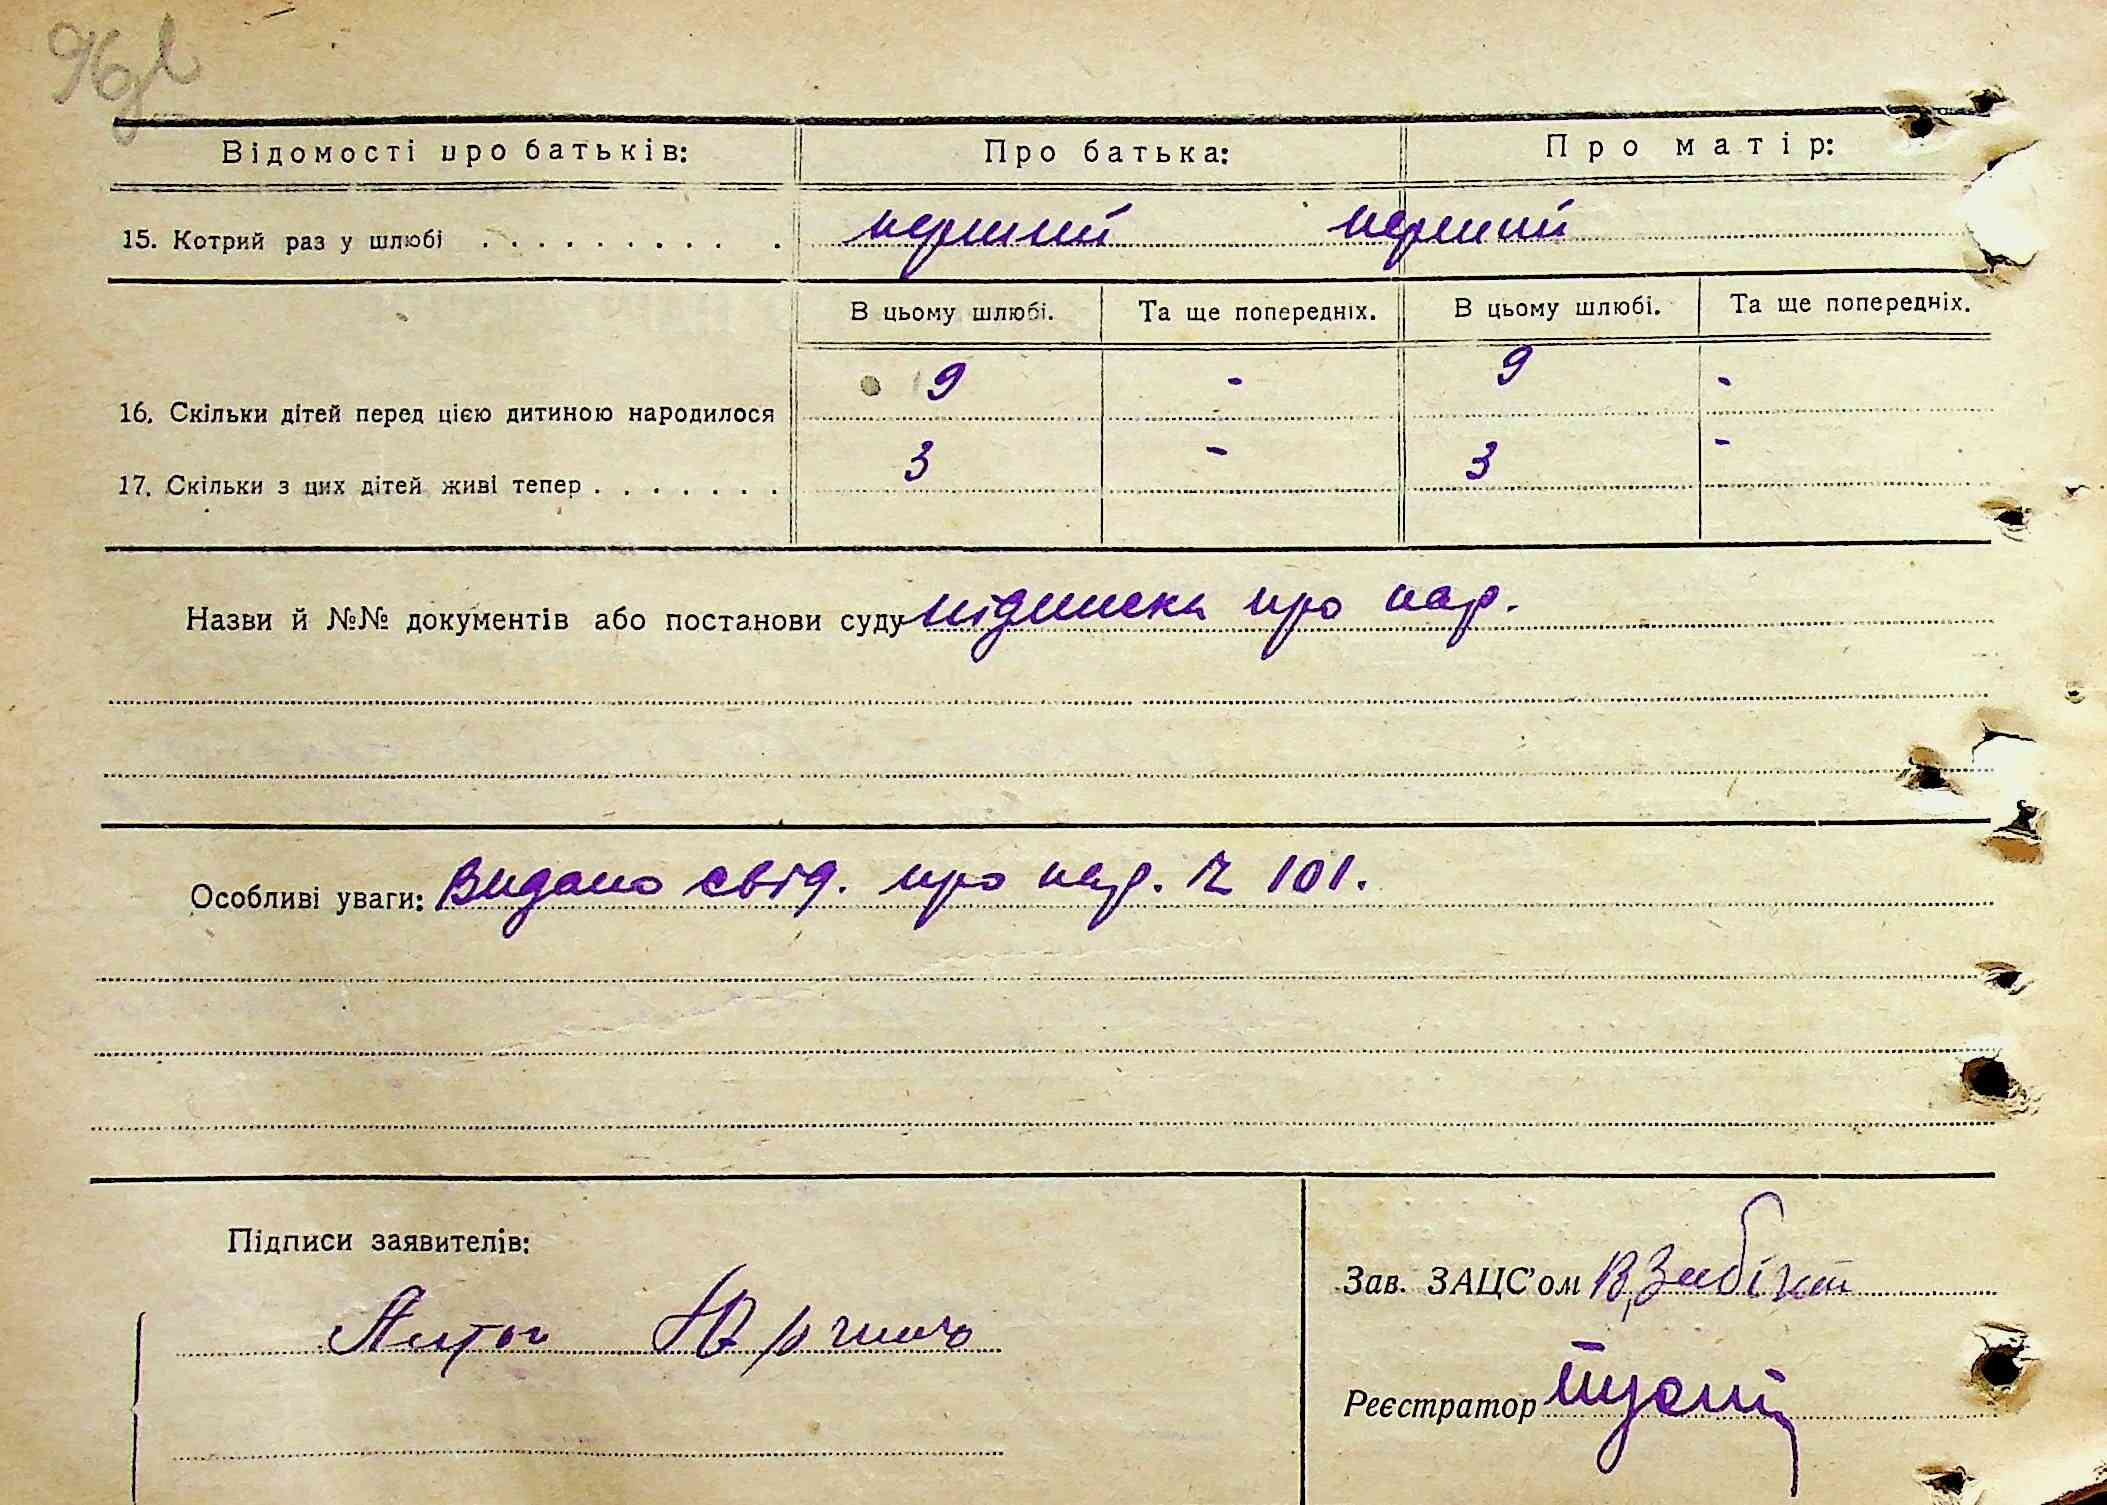 Відомості про батьків: Про батька: Про матір:
15. Котрий раз у шлюбі . . . . . . . . . . . перший перший
В цьому шлюбі. Та ще попередніх. В цьому шлюбі. Та ще попередніх.
16. Скільки дітей перед цією дитиною народилося 9 - 9 -
17. Скільки з цих дітей живі тепер . . . . . . . 3 - 3 -
Назви й №№ документів або постанови суду підписка про нар.
Особливі уваги: Видано свід. про нар. Ч 101.
Підписи заявителів:
Зав. ЗАЦС'ом
Реєстратор